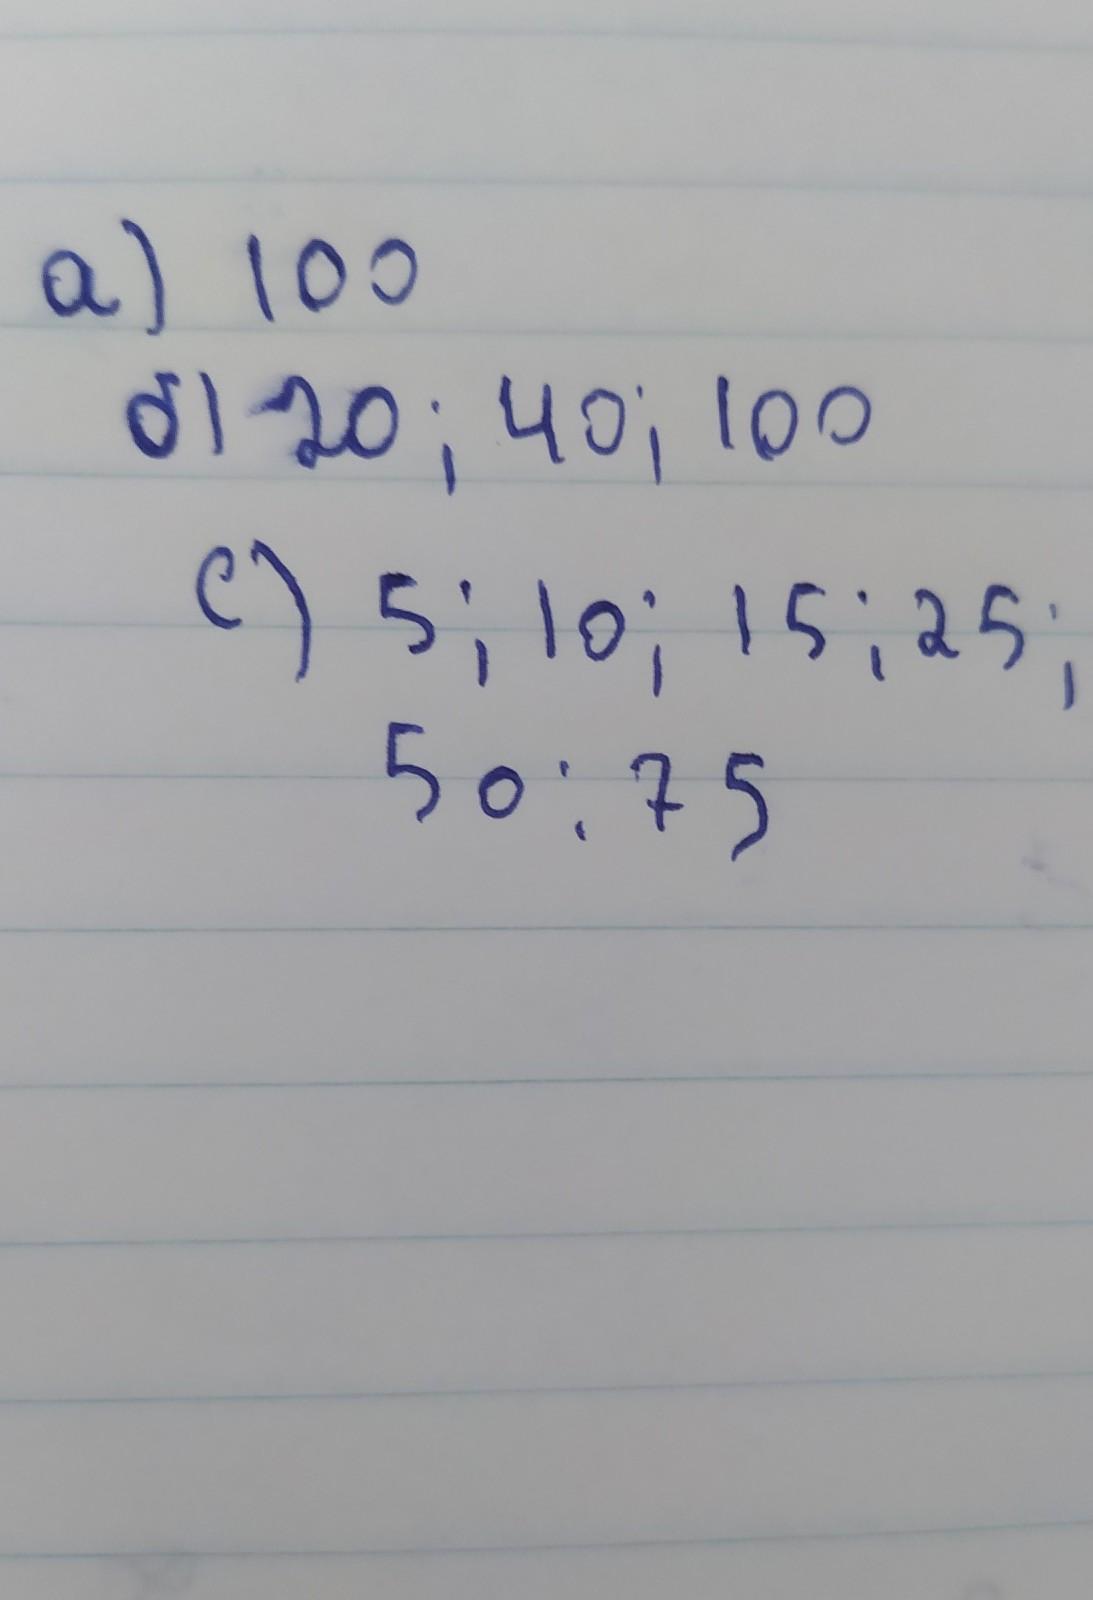 а) 100
б) 20; 40; 100
с) 5; 10; 15; 25;
50; 75